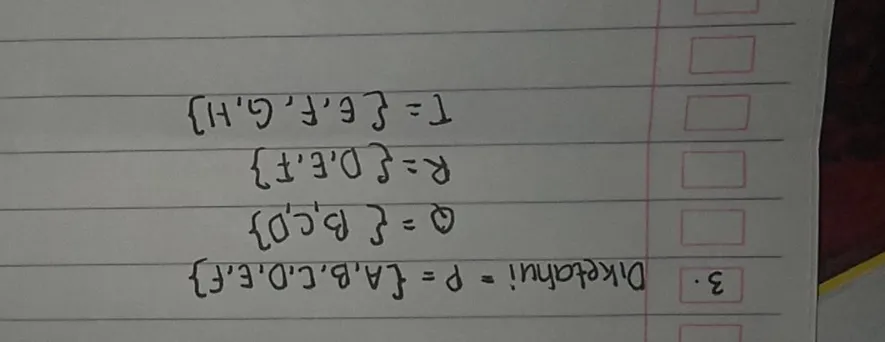 3. Diketahui = P = {A, B, C, D, E, F}
Q = {B, C, D}
R = {D, E, F}
T = {E, F, G, H}